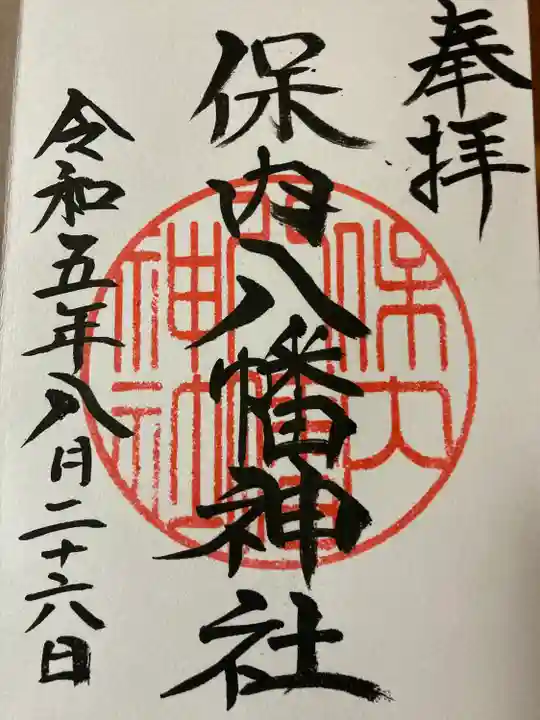 奉拝
保内八幡神社
令和五年八月二十六日